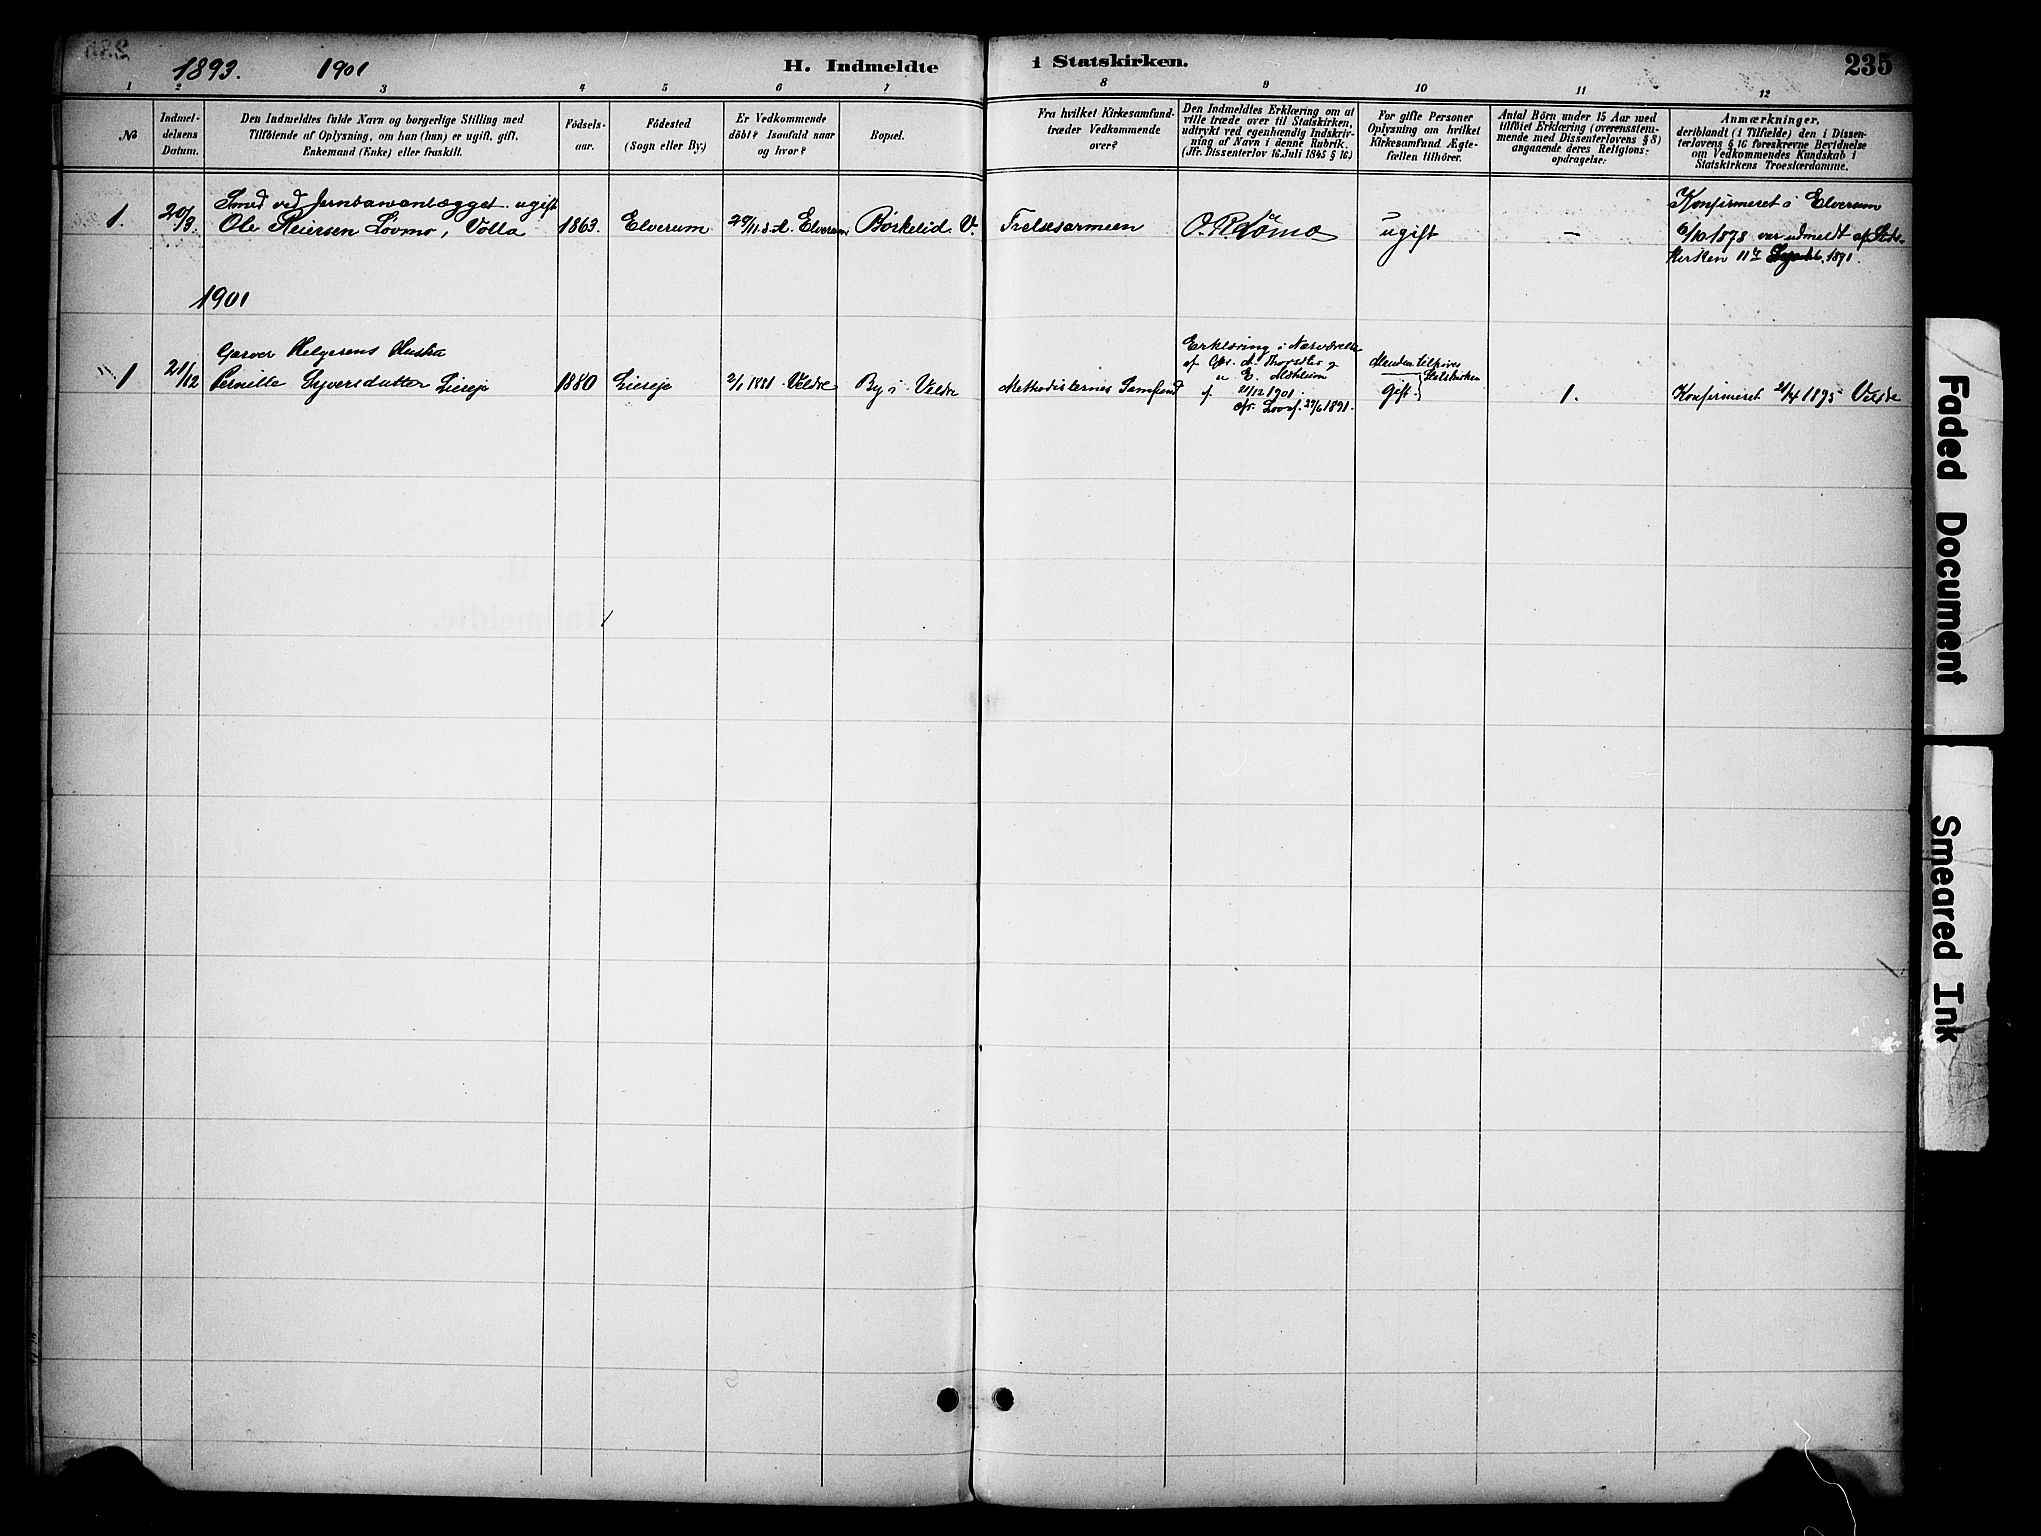 1893. 1901
H. Indmeldte i Statskirken.
235
1 2 3 4 5 6 7 8 9 10 11 12
No
Indmel-
delsens
Datum.
Den Indmeldtes fulde Navn og borgerlige Stilling med
Tilföiende af Oplysning, om han (hun) er ugift, gift,
Enkemand (Enke) eller fraskilt.
Födsels-
aar.
Födested
(Sogn eller By.)
Er Vedkommende
döbt? Isaafald naar
og hvor?
Bopæl.
Fra hvilket Kirkesamfund
træder Vedkommende
over?
Den Indmeldtes Erklæring om at
ville træde over til Statskirken,
udtrykt ved egenhændig Indskriv-
ning af Navn i denne Rubrik.
(Jfr. Dissenterlov 16. Juli 1845 § 16.)
For gifte Personer
Oplysning om hvilket
Kirkesamfund Ægte-
fællen tilhörer.
Antal Börn under 15 Aar med
tilföiet Erklæring (overensstem-
mende med Dissenterlovens § 8)
angaaende deres Religions-
opdragelse:
Anmærkninger,
deriblandt (i Tilfælde) den i Dissen-
terlovens § 16 foreskrevne Bevidnelse
om Vedkommendes Kundskab i
Statskirkens Troeslærdomme.
1.
20/9.
Smed ved Jernbaneanlægget. ugift
Ole Reiersen Lövmo, Volla
1863.
Elverum
29/11 s. A. Elverum
Börkelid. V.
Frelsesarmeen
O. R. Lömo
ugift
—
Konfirmeret i Elverum
6/10 1878 var udmeldt af Stats-
kirken 11te 1891.
1901
1
21/12
Garver Helgesens Hustru
Pernille Syversdatter Lieseje
1880
Lieseje
2/1 1881. Veldre
By i Veldre
Methodisternes Samfund
Erklæring i Nærværelse
af A. Thorsdlev og
E.
af 21/12 1901.
cfr. Lov af 27/6 1891.
Manden tilhører
Statskirken
Gift.
1.
Konfirmeret 21/4 1895 Veldre
Faded Document
Smeared Ink